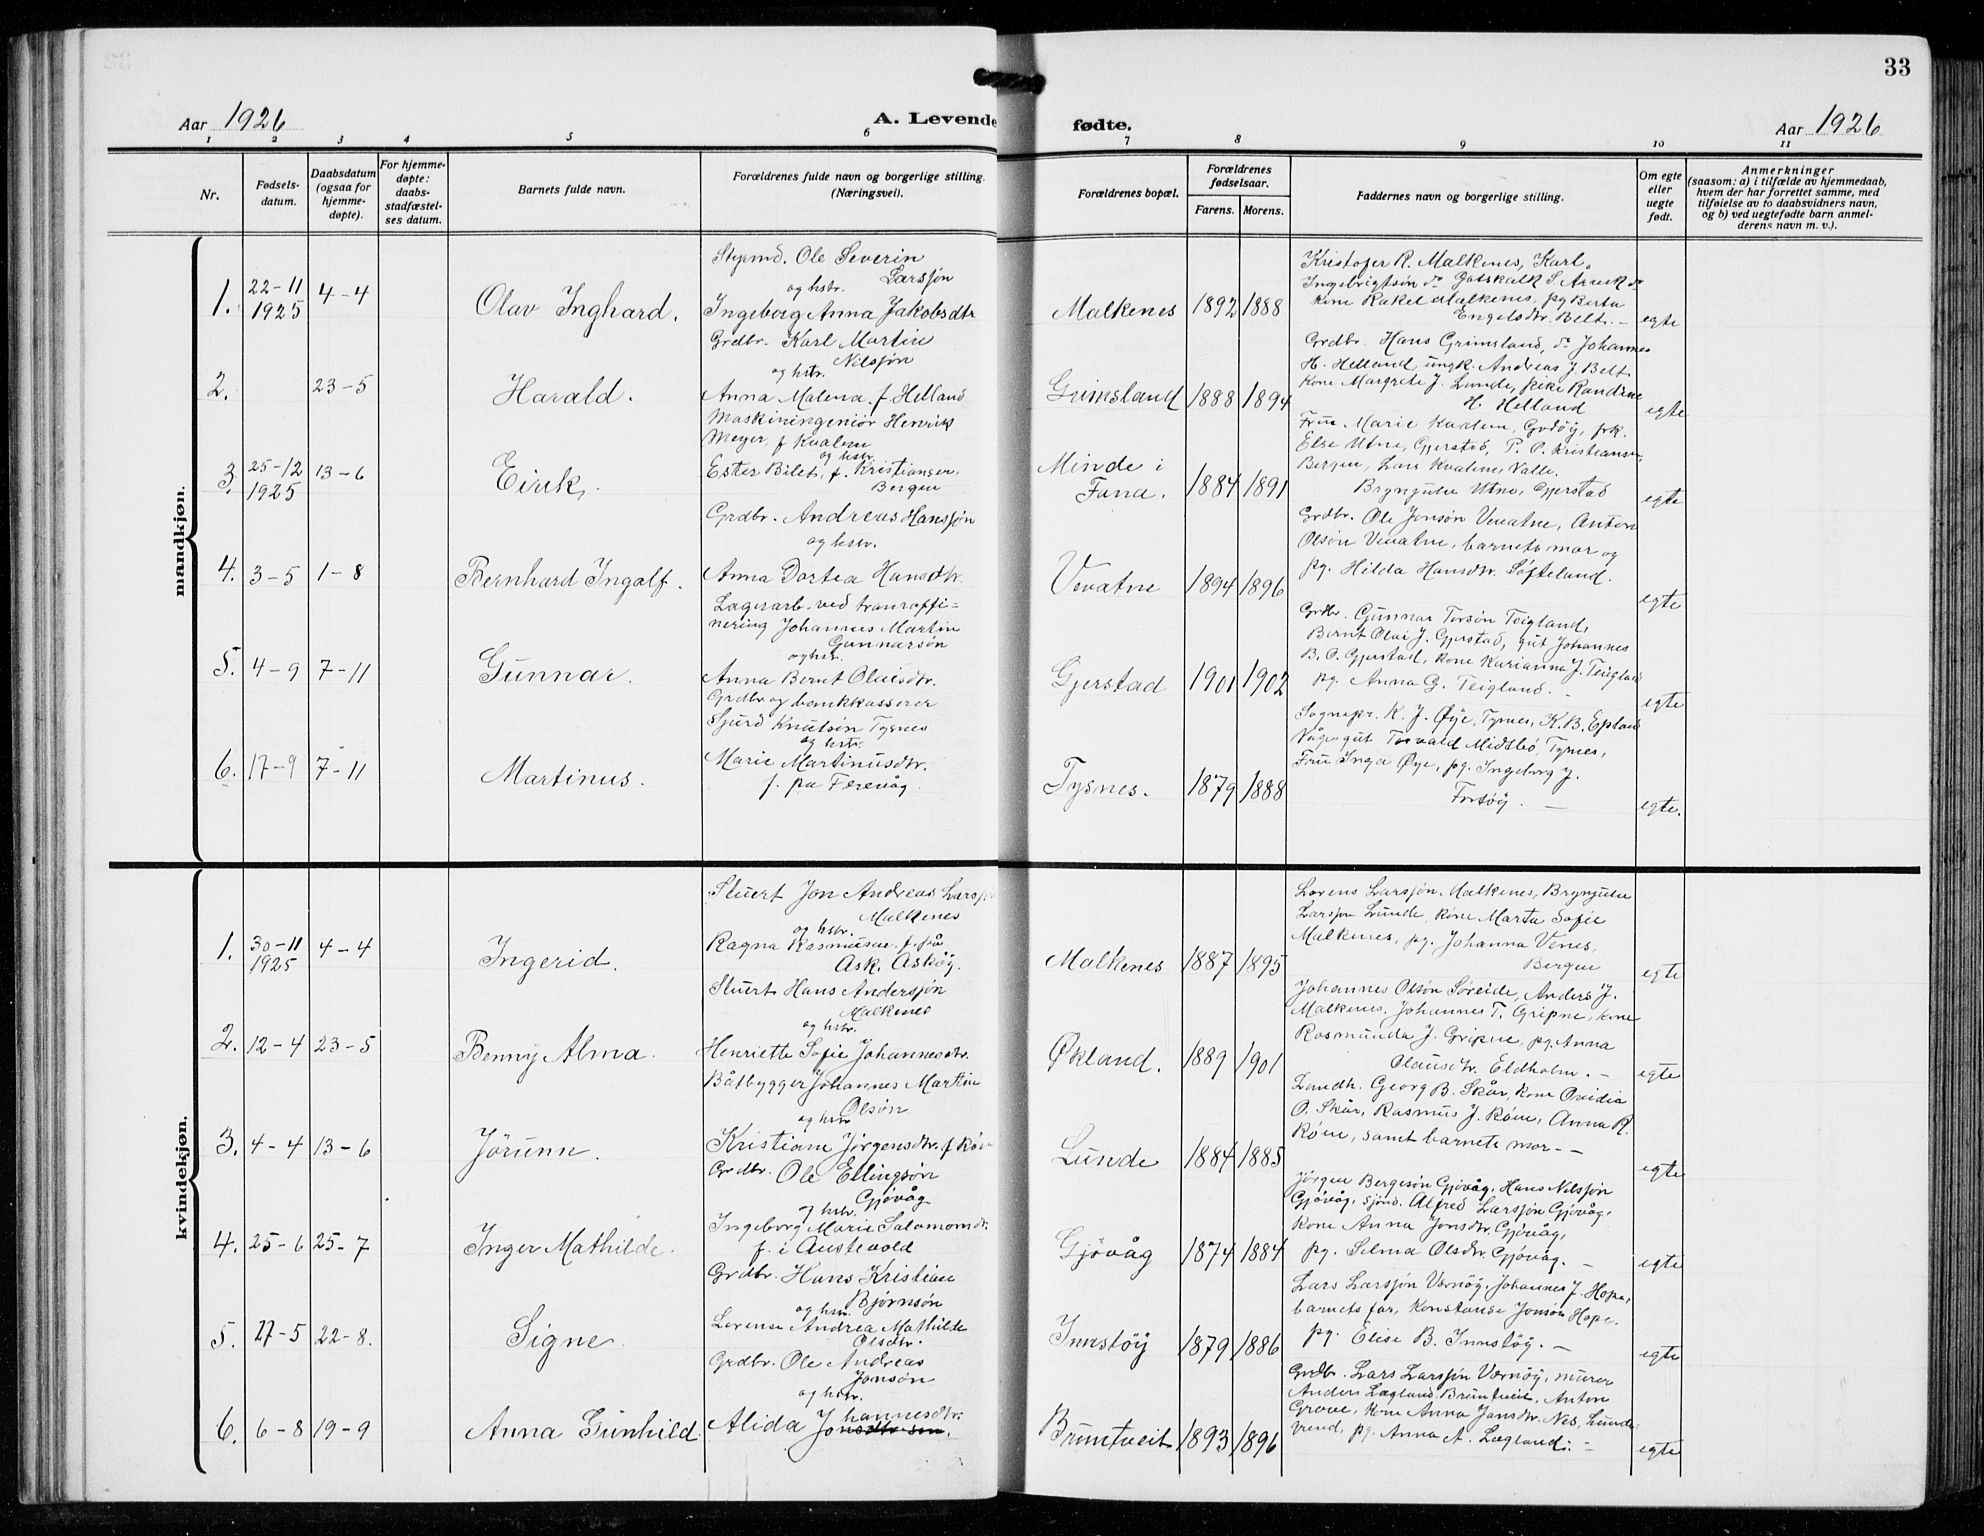 33
Aar 1926
A. Levende fødte.
Aar 1926
1 2 3 4 5 6 7 8 9 10 11
Nr.
Fødsels-
datum.
Daabsdatum
(ogsaa for
hjemme-
døpte).
For hjemme-
døpte:
daabs-
stadfæstel-
ses datum.
Barnets fulde navn.
Forældrenes fulde navn og borgerlige stilling.
(Næringsvei).
Forældrenes bopæl.
Forældrenes
fødselsaar.
Farens. Morens.
Faddernes navn og borgerlige stilling.
Om egte
eller
uegte
født.
Anmerkninger
(saasom: a) i tilfælde av hjemmedaab,
hvem der har forrettet samme, med
tilføielse av to daabsvidners navn,
og b) ved uegtefødte barn anmel-
derens navn m. v.).
mandkjøn.
1.
22-11
1925
4-4
Olav Inghard.
Styrmd. Ole Severin
Larssøn
og hstr.
Ingeborg Anna Jakobsdtr
Malkenes
1892 1888
Kristofer R. Malkenes, Karl
Ingebrigtsøn do Gotskalk S.
kone Rakel Malkenes, pg Berta
Engelsdtr. Belt. -
egte
2.
23-5
Harald.
Grdbr. Karl Martin
Nilssøn
og hstr.
Anna Malena f Helland
Grimsland
1888 1894
Grdbr. Hans Grimsland, do Johannes
H. Helland, ungk. Andreas J. Belt
kone Margrete J. Lunde, pike Randine
H. Helland
egte
3.
25-12
1925
13-6
Eirik.
Maskiningeniør Henrik
Meyer, f Kvalem
og hstr.
Ester Bilet, f. Kristiansen,
Bergen
Minde i
Fana.
1884 1891
Frue Marie Kvalem, Godøy, frk.
Else Utne, Gjerstad, P. O. Kristiansen,
Bergen, Lars Kvalem, Valle.
Brynjulv Utne, Gjerstad
egte
4.
3-5
1-8
Bernhard Ingolf.
Grdbr. Andreas Hanssøn
og hstr.
Anna Dortea Hansdtr.
Vevatne
1894 1896
Grdbr. Ole Jonsøn Vevatne, Anton
Olsøn Vevatne, barnets mor og
pg. Hilda Hansdtr. Søfteland.
egte
5.
4-9
7-11
Gunnar.
Lagerarb. ved tranraffi-
nering Johannes Martin
Gunnarsøn
og hstr.
Anna Bernt Olaisdtr.
Gjerstad
1901 1902
Grdbr. Gunnar Torsøn Teigland,
Bernt Olai J. Gjerstad, gut Johannes
B. O. Gjerstad, kone Karianna J. Teigland
pg. Anna G. Teigland. -
egte
6.
17-9
7-11
Martinus.
Grdbr og bankkasserer
Sjurd Knutsøn Tysnes
og hstr.
Marie Martinusdtr.
f. pa Færevåg.
Tysnes.
1879 1888
Sognepr. K. J. Øye, Tysnes, K. B. Epland
Våge, gut Torvald Midtbø, Tysnes,
Frue Inga Øye, pg. Ingeborg J.
Forsøy. -
egte.
kvindekjøn.
1.
30-11
1925
4-4
Ingerid.
Stuert Jon Andreas Larssøn
Malkenes
og hstr.
Ragna Rasmussen f. på
Ask, Askøy.
Malkenes
1887 1895
Lorens Larssøn Malkenes, Brynjulv
Larssøn Lunde, kone Marta Sofie
Malkenes, pg. Johanna Venes,
Bergen
egte
2.
12-4
23-5
Benny Alma.
Stuert Hans Anderssøn
Malkenes
og hstr.
Henriette Sofie Johannesdtr.
Økland.
1889 1901
Johannes Olsøn Søreide, Anders J.
Malkenes, Johannes T. Gripne, kone
Rasmunda J. Gripne, pg. Anna
Olausdtr. Eldholm. -
egte
3.
4-4
13-6
Jørunn.
Båtbygger Johannes Martin
Olsøn
og hstr
Kristiane Jørgensdtr. f Røn
Lunde
1884 1885
Landh. Georg B. Skår, kone Ovidia
O. Skår, Rasmus J. Røne, Anna R.
Røne, samt barnets mor. -
egte
4.
25-6
25-7
Inger Mathilde.
Grdbr. Ole Ellingsøn
Gjøvåg
og hstr.
Ingeborg Marie Salomonsdtr.
f. i Austevold
Gjøvåg
1874 1884
Jørgen Bergesøn Gjøvåg, Hans Nilssøn
Gjøvåg, sjømd. Alfred Larssøn Gjøvåg,
kone Anna Jonsdtr. Gjøvåg,
pg. Selma Olsdtr. Gjøvåg. -
egte
5.
27-5
22-8.
Signe.
Grdbr. Hans Kristian
Bjørnsøn
og hstr.
Lorense Andrea Mathilde
Olsdtr.
Innstøy
1879 1886
Lars Larssøn Vernøy, Johannes J. Hope,
barnets far, Konstanse Jonsøn Hope.
pg. Elise B. Innstøy. -
egte
6.
6-8
19-9
Anna Gunhild
Grdbr. Ole Andreas
Jonsøn
og hstr.
Alida Johannesdtr.
Bruntveit
1893 1896
Grdbr. Lars Larssøn Vernøy, murer
Anders Lægland, Bruntveit, Anton
Grove, kone Anna Jansdtr. Nes, Lunde-
vend, pg. Anna A. Lægland. -
egte